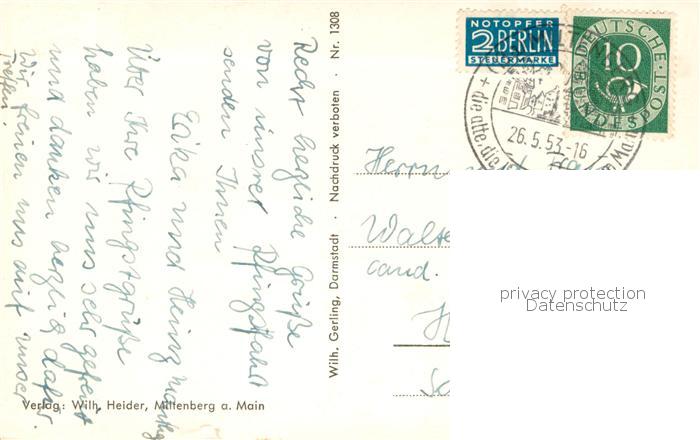 Recht herzliche Grüße
von unsrer Pfingstfahrt
senden Ihnen
Erika und Heinz
Über Ihre Pfingstgrüße
haben wir uns sehr gefreut
und danken herzlich dafür.
Wir freuen uns auf unser
Treffen!
Wilh. Gerling, Darmstadt · Nachdruck verboten · Nr. 1308
Verlag: Wilh. Heider, Miltenberg a. Main
NOTOPFER
2 BERLIN
STEUERMARKE
DEUTSCHE
BUNDESPOST
10
MILTENB
+ die alte, die
26.5.53.-16
Herrn
Walte
cand.
privacy protection
Datenschutz